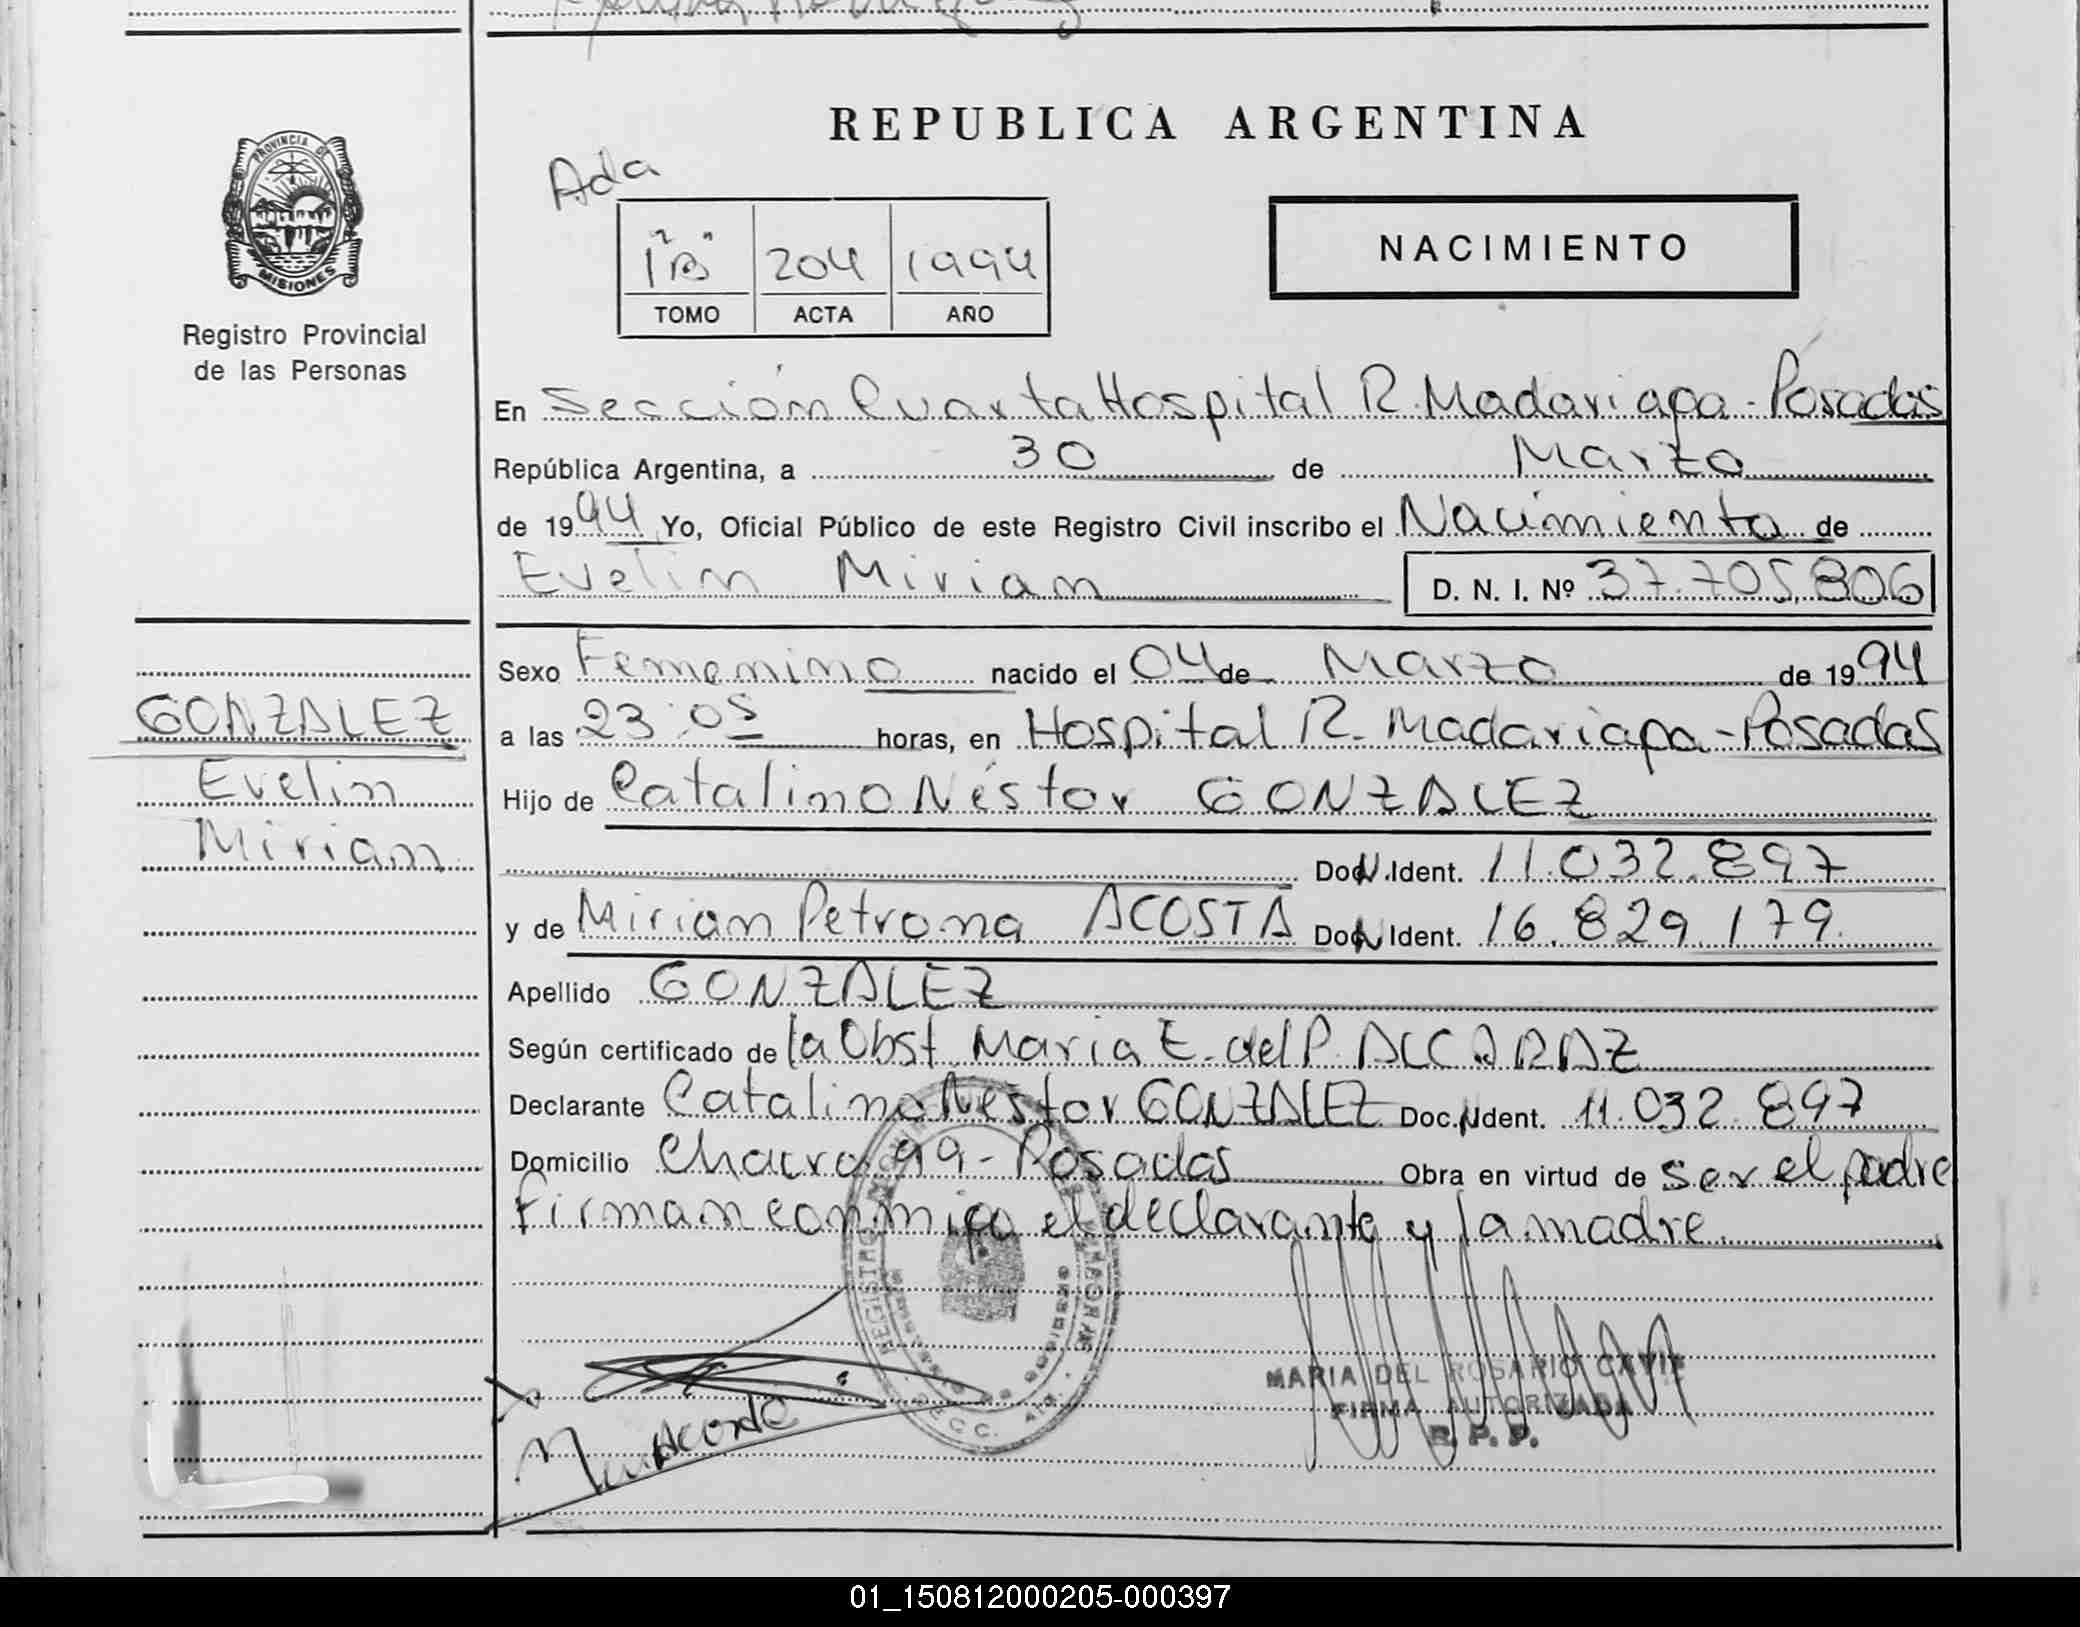 REPUBLICA ARGENTINA
PROVINCIA DE
MISIONES
Registro Provincial
de las Personas
Ada
1"B" 204 1994
TOMO ACTA AÑO
NACIMIENTO
En Sección Cuarta Hospital R. Madariaga - Posadas
República Argentina, a 30 de Marzo
de 1994 Yo, Oficial Público de este Registro Civil inscribo el Nacimiento de
Evelin Mirian D. N. I. Nº 37.705.806
Sexo Femenino nacido el 04 de Marzo de 1994
GONZALEZ
Evelin
Mirian
a las 23:05 horas, en Hospital R. Madariaga - Posadas
Hijo de Catalino Néstor GONZALEZ
Doc. N. Ident. 11.032.897
y de Mirian Petrona ACOSTA Doc. N Ident. 16.829.179.
Apellido GONZALEZ
Según certificado de la Obst. Maria E. del P. ALCARAZ
Declarante Catalino Néstor GONZALEZ Doc. N Ident. 11.032.897
Domicilio Chacra 99 - Posadas Obra en virtud de ser el padre
Firman conmigo el declarante y la madre.
MARIA DEL ROSARIO
FIRMA AUTORIZADA
R. P. P.
01_150812000205-000397